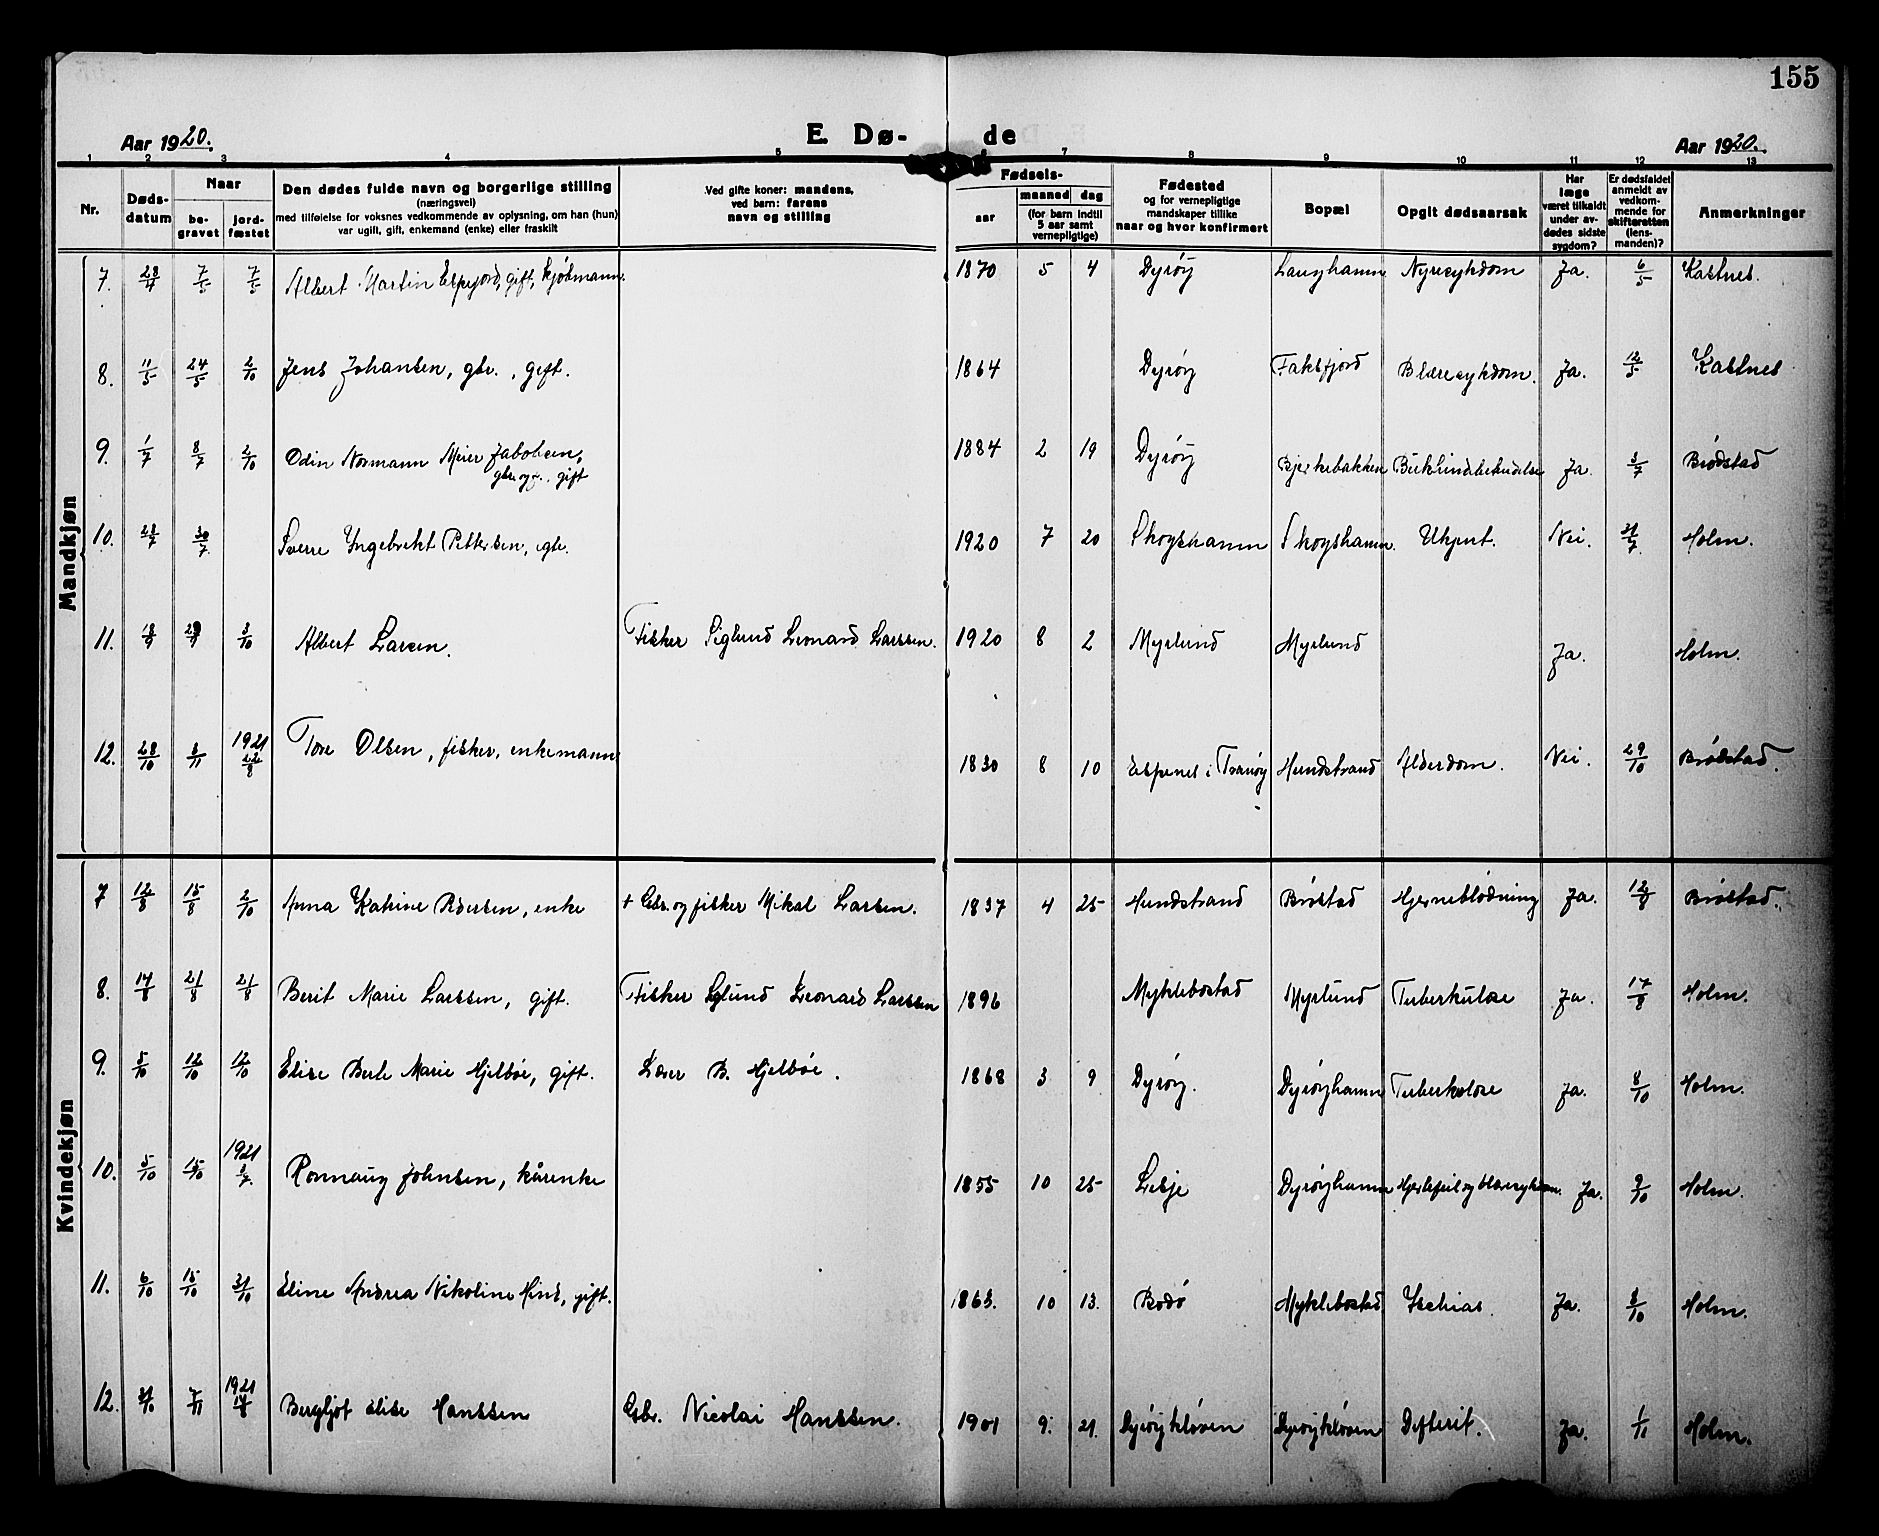 155
Aar 1920.
E. Dø- de
Aar 1920.
1 2 3 4 5 7 8 9 10 11 12 13
Nr.
Døds-
datum
Naar
be-
gravet
jord-
fæstet
Den dødes fulde navn og borgerlige stilling
(næringsvei)
med tilføielse for voksnes vedkommende av oplysning, om han (hun)
var ugift, gift, enkemand (enke) eller fraskilt
Ved gifte koner: mandens,
ved barn: farens
navn og stilling
Fødsels-
aar
maaned dag
(for barn indtil
5 aar samt
vernepligtige)
Fødested
og for vernepligtige
mandskaper tillike
naar og hvor konfirmert
Bopæl
Opgit dødsaarsak
Har
læge
været tilkaldt
under av-
dødes sidste
sygdom?
Er dødsfaldet
anmeldt av
vedkom-
mende for
skifteretten
(lens-
manden)?
Anmerkninger
Mandkjøn
7. 7/5 7/5 Albert Martin Espejord, gift, 1870 5 4 Dyrøy Langhamn Nyresykdom Ja. 6/5 Kastnes.
8. 11/5 24/5 2/10 Jens Johansen, gbr., gift. 1864 Dyrøy Faksfjord Blæresykdom. Ja. 12/5 Kastnes
9. 1/7 8/7 2/10 Odin Normann Meier Jakobsen, 1884 2 19 Dyrøy Bjerkebakken Ja. 3/7 Brødstad
gift
10. 30/7 Sverre Ingebrekt Pettersen, 1920 7 20 Skogshamn Skogshamn. Ukjent. Nei. 31/7 Holm.
11. 3/10 Albert Larsen. Fisker Siglund Leonard Larssen. 1920 8 2 Myrlund Myrlund Ja. Holm.
12. 28/10 3/11 1921 22/8 Tore Olsen, fisker, enkemann 1830 8 10 Espenes i Tranøy Hundstrand Alderdom. Nei. 29/10 Brødstad.
Kvindekjøn
7 12/8 15/8 2/10 Anna Katrine Pedersen, enke + Gbr. og fisker Mikal Larsen. 1837 4 25 Hundstrand Brøstad Hjerneblødning Ja. 12/8 Brøstad.
8. 14/8 21/8 21/8 Berit Marie Larssen, gift. Fisker Siglund Leonard Larssen 1896 Myklebostad Myrlund Tuberkulose Ja. 17/8 Holm.
9. 5/10 12/10 12/10 Elise Berle Marie Hjelbøe, gift. Lærer B. Hjelbøe. 1868 3 9 Dyrøy. Dyrøyhamn Tuberkulose Ja. 8/10 Holm.
10. 5/10 15/10 1921 Ronnaug Johnsen, kårenke 1855 10 25 Lesje Dyrøyhamn Hjertefeil og blæresykdom. Ja. 9/10 Holm.
11. 6/10 15/10 31/10 Eline Andrea Nikoline Hind, gift. 1863. 10 13. Bodø Myklebostad Ischias. Ja. 8/10 Holm.
12. 31/10 7/11 1921 14/8 Bergljot Elise Hanssen Gbr. Nicolai Hanssen. 1901 9. 21. Dyrøykløven Dyrøykløven Difterit. Ja. 1/11 Holm.